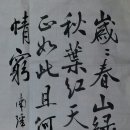 歲三春山緑
秋葉紅天
正如此且何
情窮